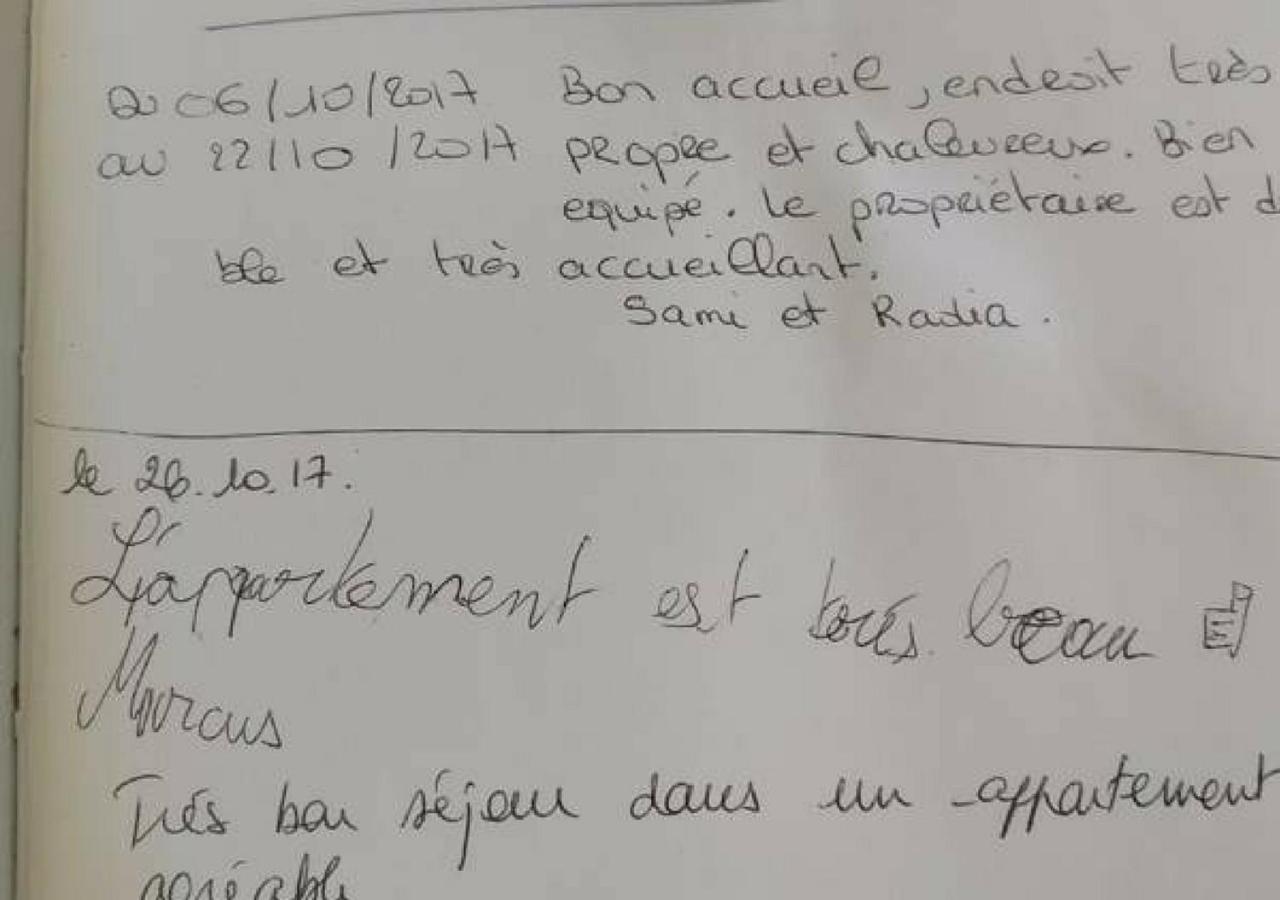 Du 06/10/2017 Bon accueil, endroit très
au 22/10/2017 propre et chaleureux. Bien
equipé. Le propriétaire est d
ble et très accueillant.
Sami et Radia.
le 26.10.17.
L'appartement est trés beau
Marcus
Trés bon séjour dans un appartement
agréable